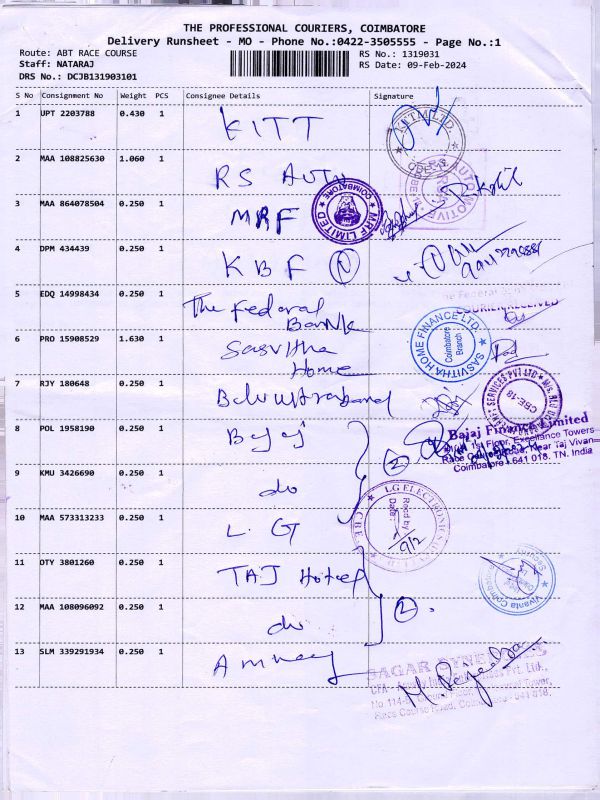 THE PROFESSIONAL COURIERS, COIMBATORE
Delivery Runsheet - MO - Phone No.:0422-3505555 - Page No.:1
Route: ABT RACE COURSE
RS No.: 1319031
Staff: NATARAJ
RS Date: 09-Feb-2024
DRS No.: DCJB131903101
S No Consignment No Weight PCS Consignee Details Signature
1 UPT 2203788 0.430 1 KITT
KITM LTD.
CBE-18
2 MAA 108825630 1.060 1 RS AUTO
AUTOMOTIVE
3 MAA 864078504 0.250 1 MRF
MRF LIMITED
COIMBATORE
4 DPM 434439 0.250 1 KBF
5 EDQ 14998434 0.250 1 The Federal
Bank
COURIER RECEIVED
6 PRO 15908529 1.630 1 Sasvitha
Home
SASVITHA HOME FINANCE LTD.
Coimbatore
Branch
7 RJY 180648 0.250 1
SERVICES PVT LTD
CBE-18
8 POL 1958190 0.250 1 Bajaj
2
Bajaj Finance Limited
1st Floor, Excellance Towers
Race Course Near Taj Vivan
Coimbatore - 641 018. TN. India
9 KMU 3426690 0.250 1 do
10 MAA 573313233 0.250 1 L.G
LG ELECTRONICS
CBE
Recd by
Date:
9/2
11 OTY 3801260 0.250 1 TAJ Hotel
Vivanta Coimbatore
12 MAA 108096092 0.250 1 do
2
13 SLM 339291934 0.250 1 Amway
SAGAR
CFA - Amway Pvt. Ltd.,
No.114- Tower,
Race Course Road, Coimbatore - 641 018.